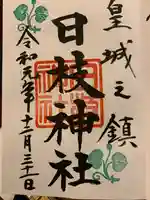 皇城之鎮
日枝神社
令和元年十二月三十一日